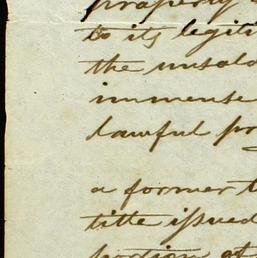 property
to its legiti
the unsol
immense
lawful pr
a former t
title issued
portion of